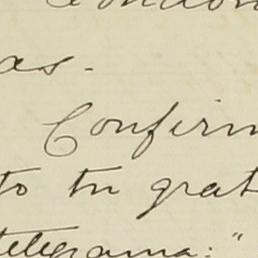 London
as.
Confirm
to tu grat
telegrama: "